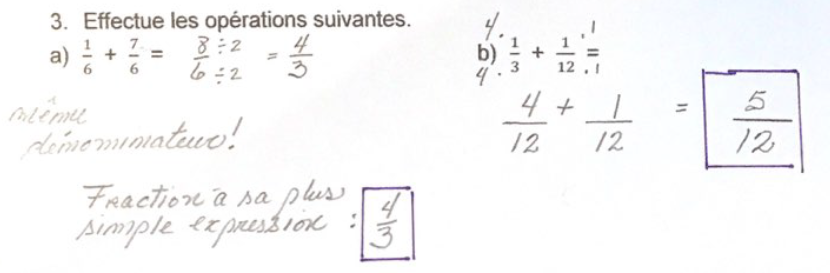 3. Effectue les opérations suivantes.
a) 1/6 + 7/6 = 8÷2/6÷2 = 4/3
même
dénominateur!
Fraction à sa plus
simple expression : 4/3
b) 4·1/4·3 + 1·1/12·1 =
4/12 + 1/12 = 5/12